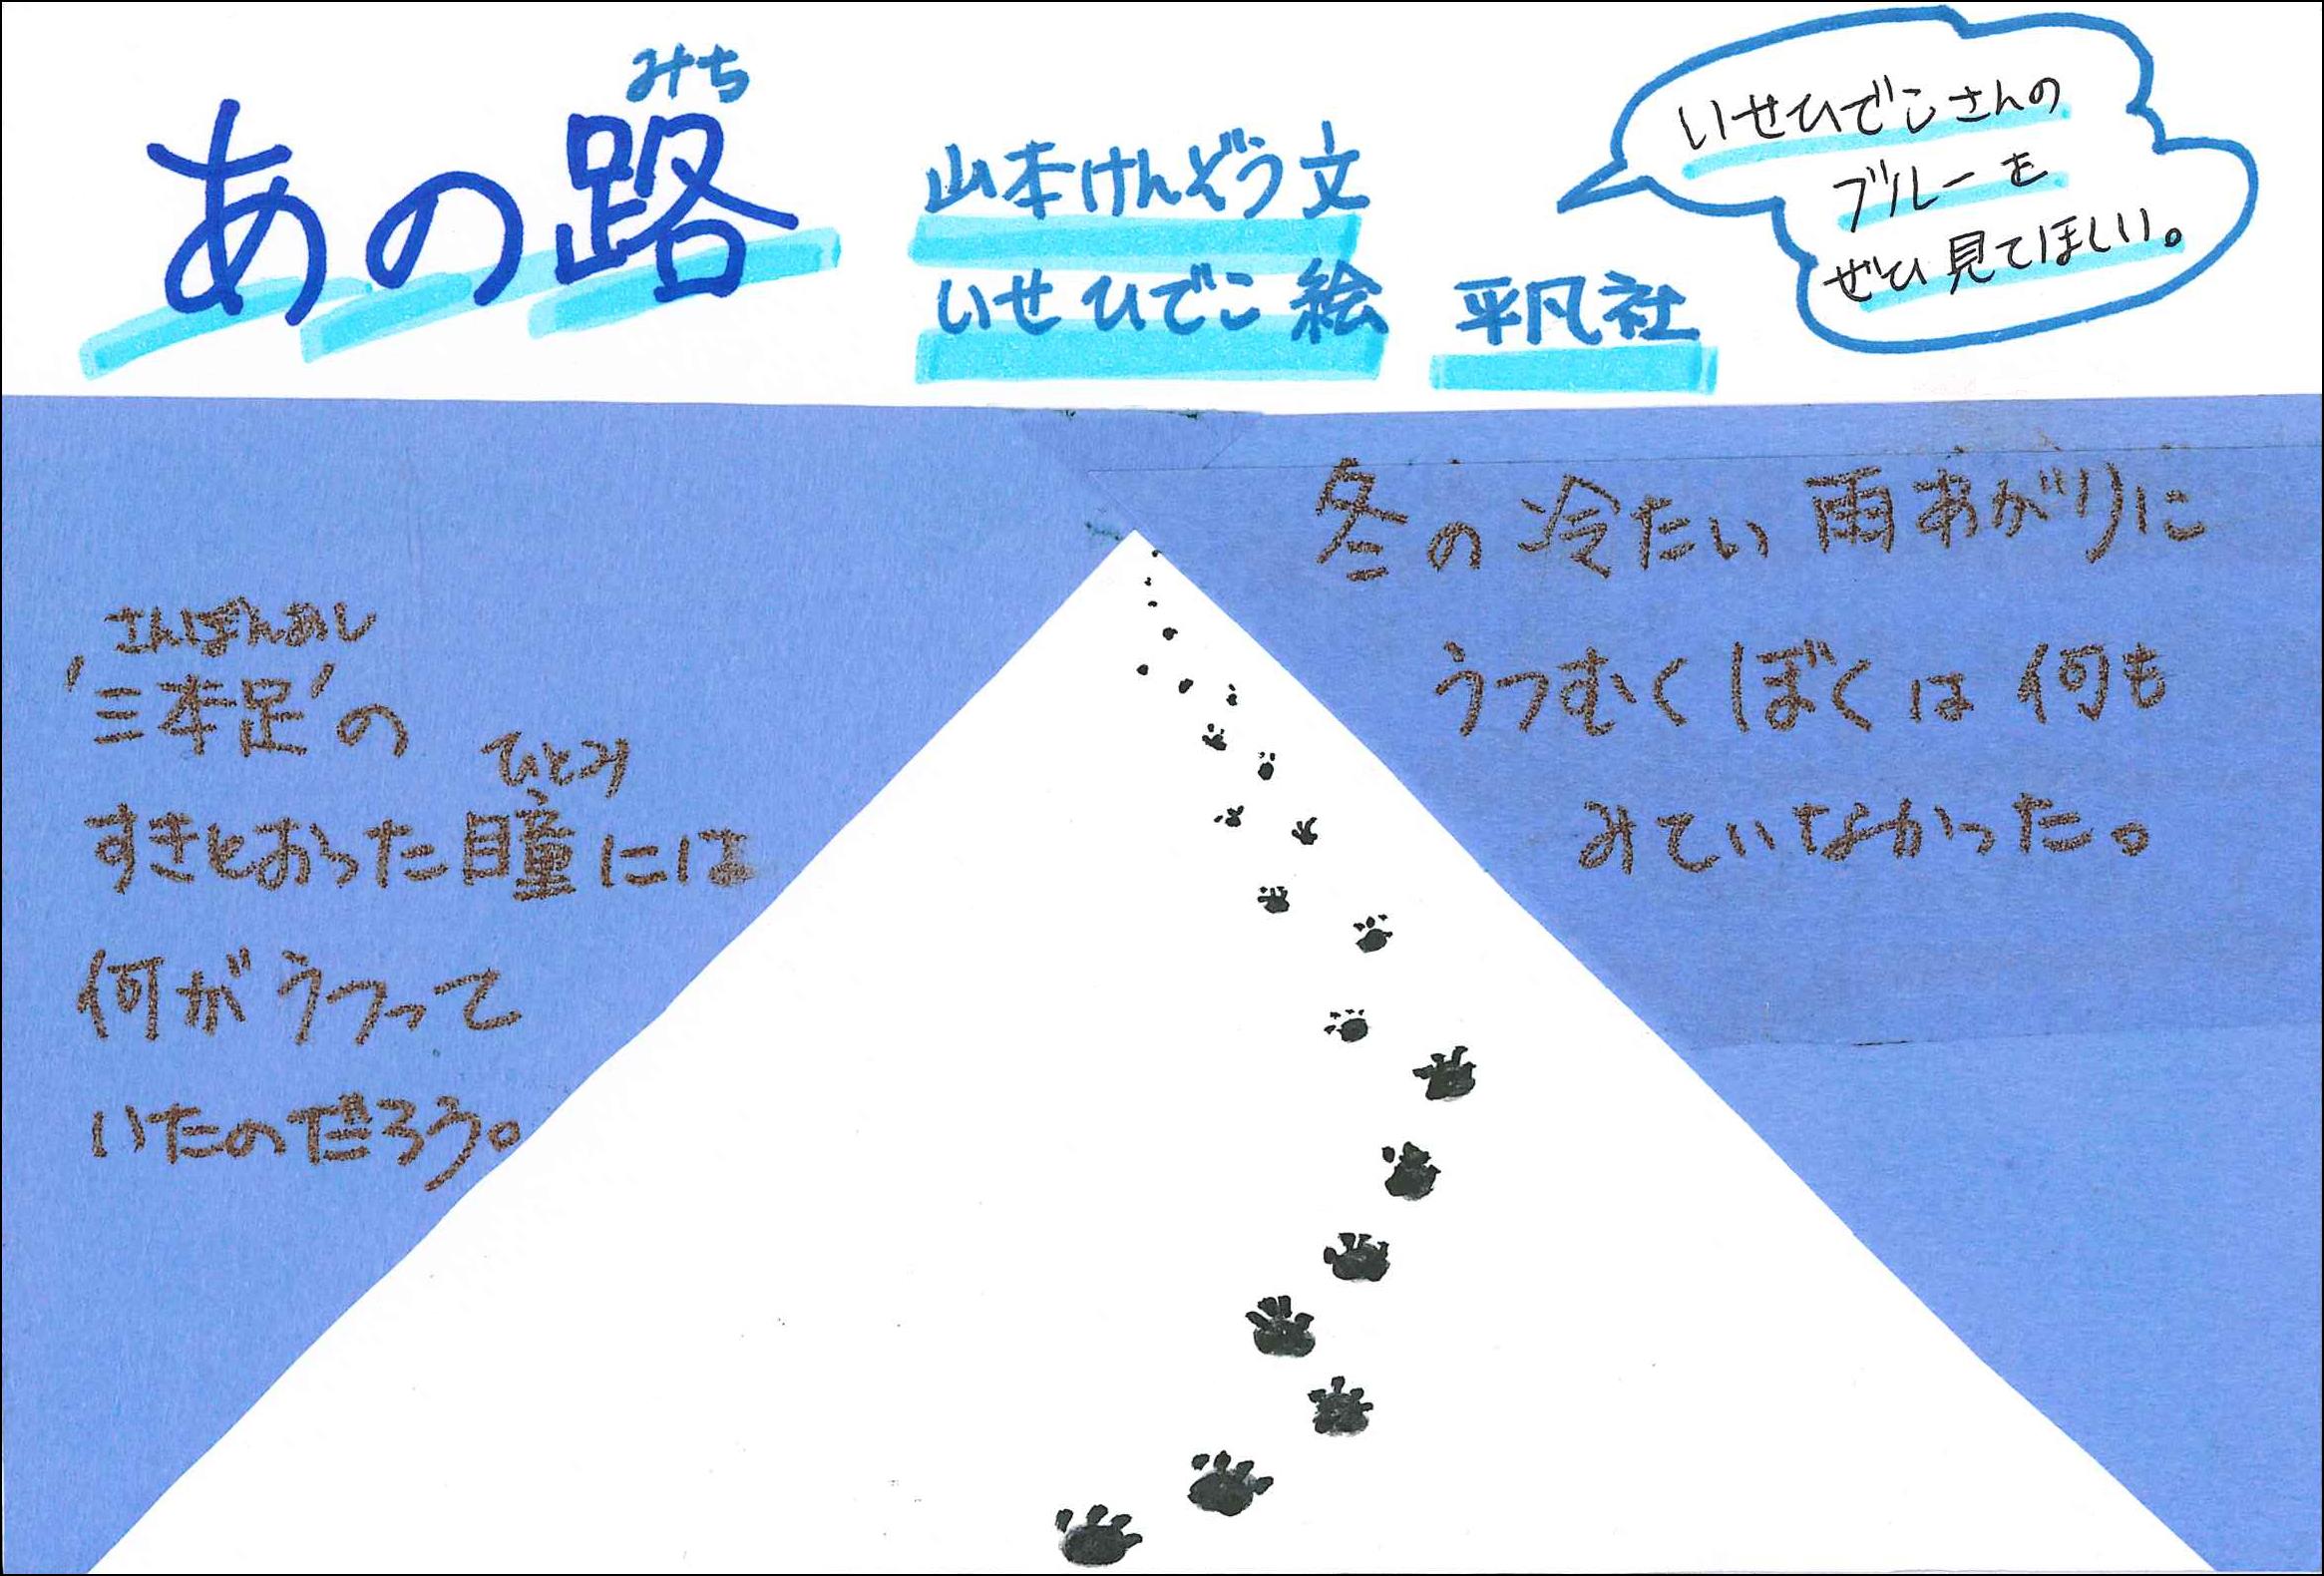 みち
あの路
山本けんぞう文
いせひでこ絵 平凡社
いせひでこさんの
ブルーを
ぜひ見てほしい。
冬の冷たい雨あがりに
うつむくぼくは何も
みていなかった。
さんぼんあし
'三本足'の
ひとみ
すきとおった瞳には
何がうつって
いたのだろう。